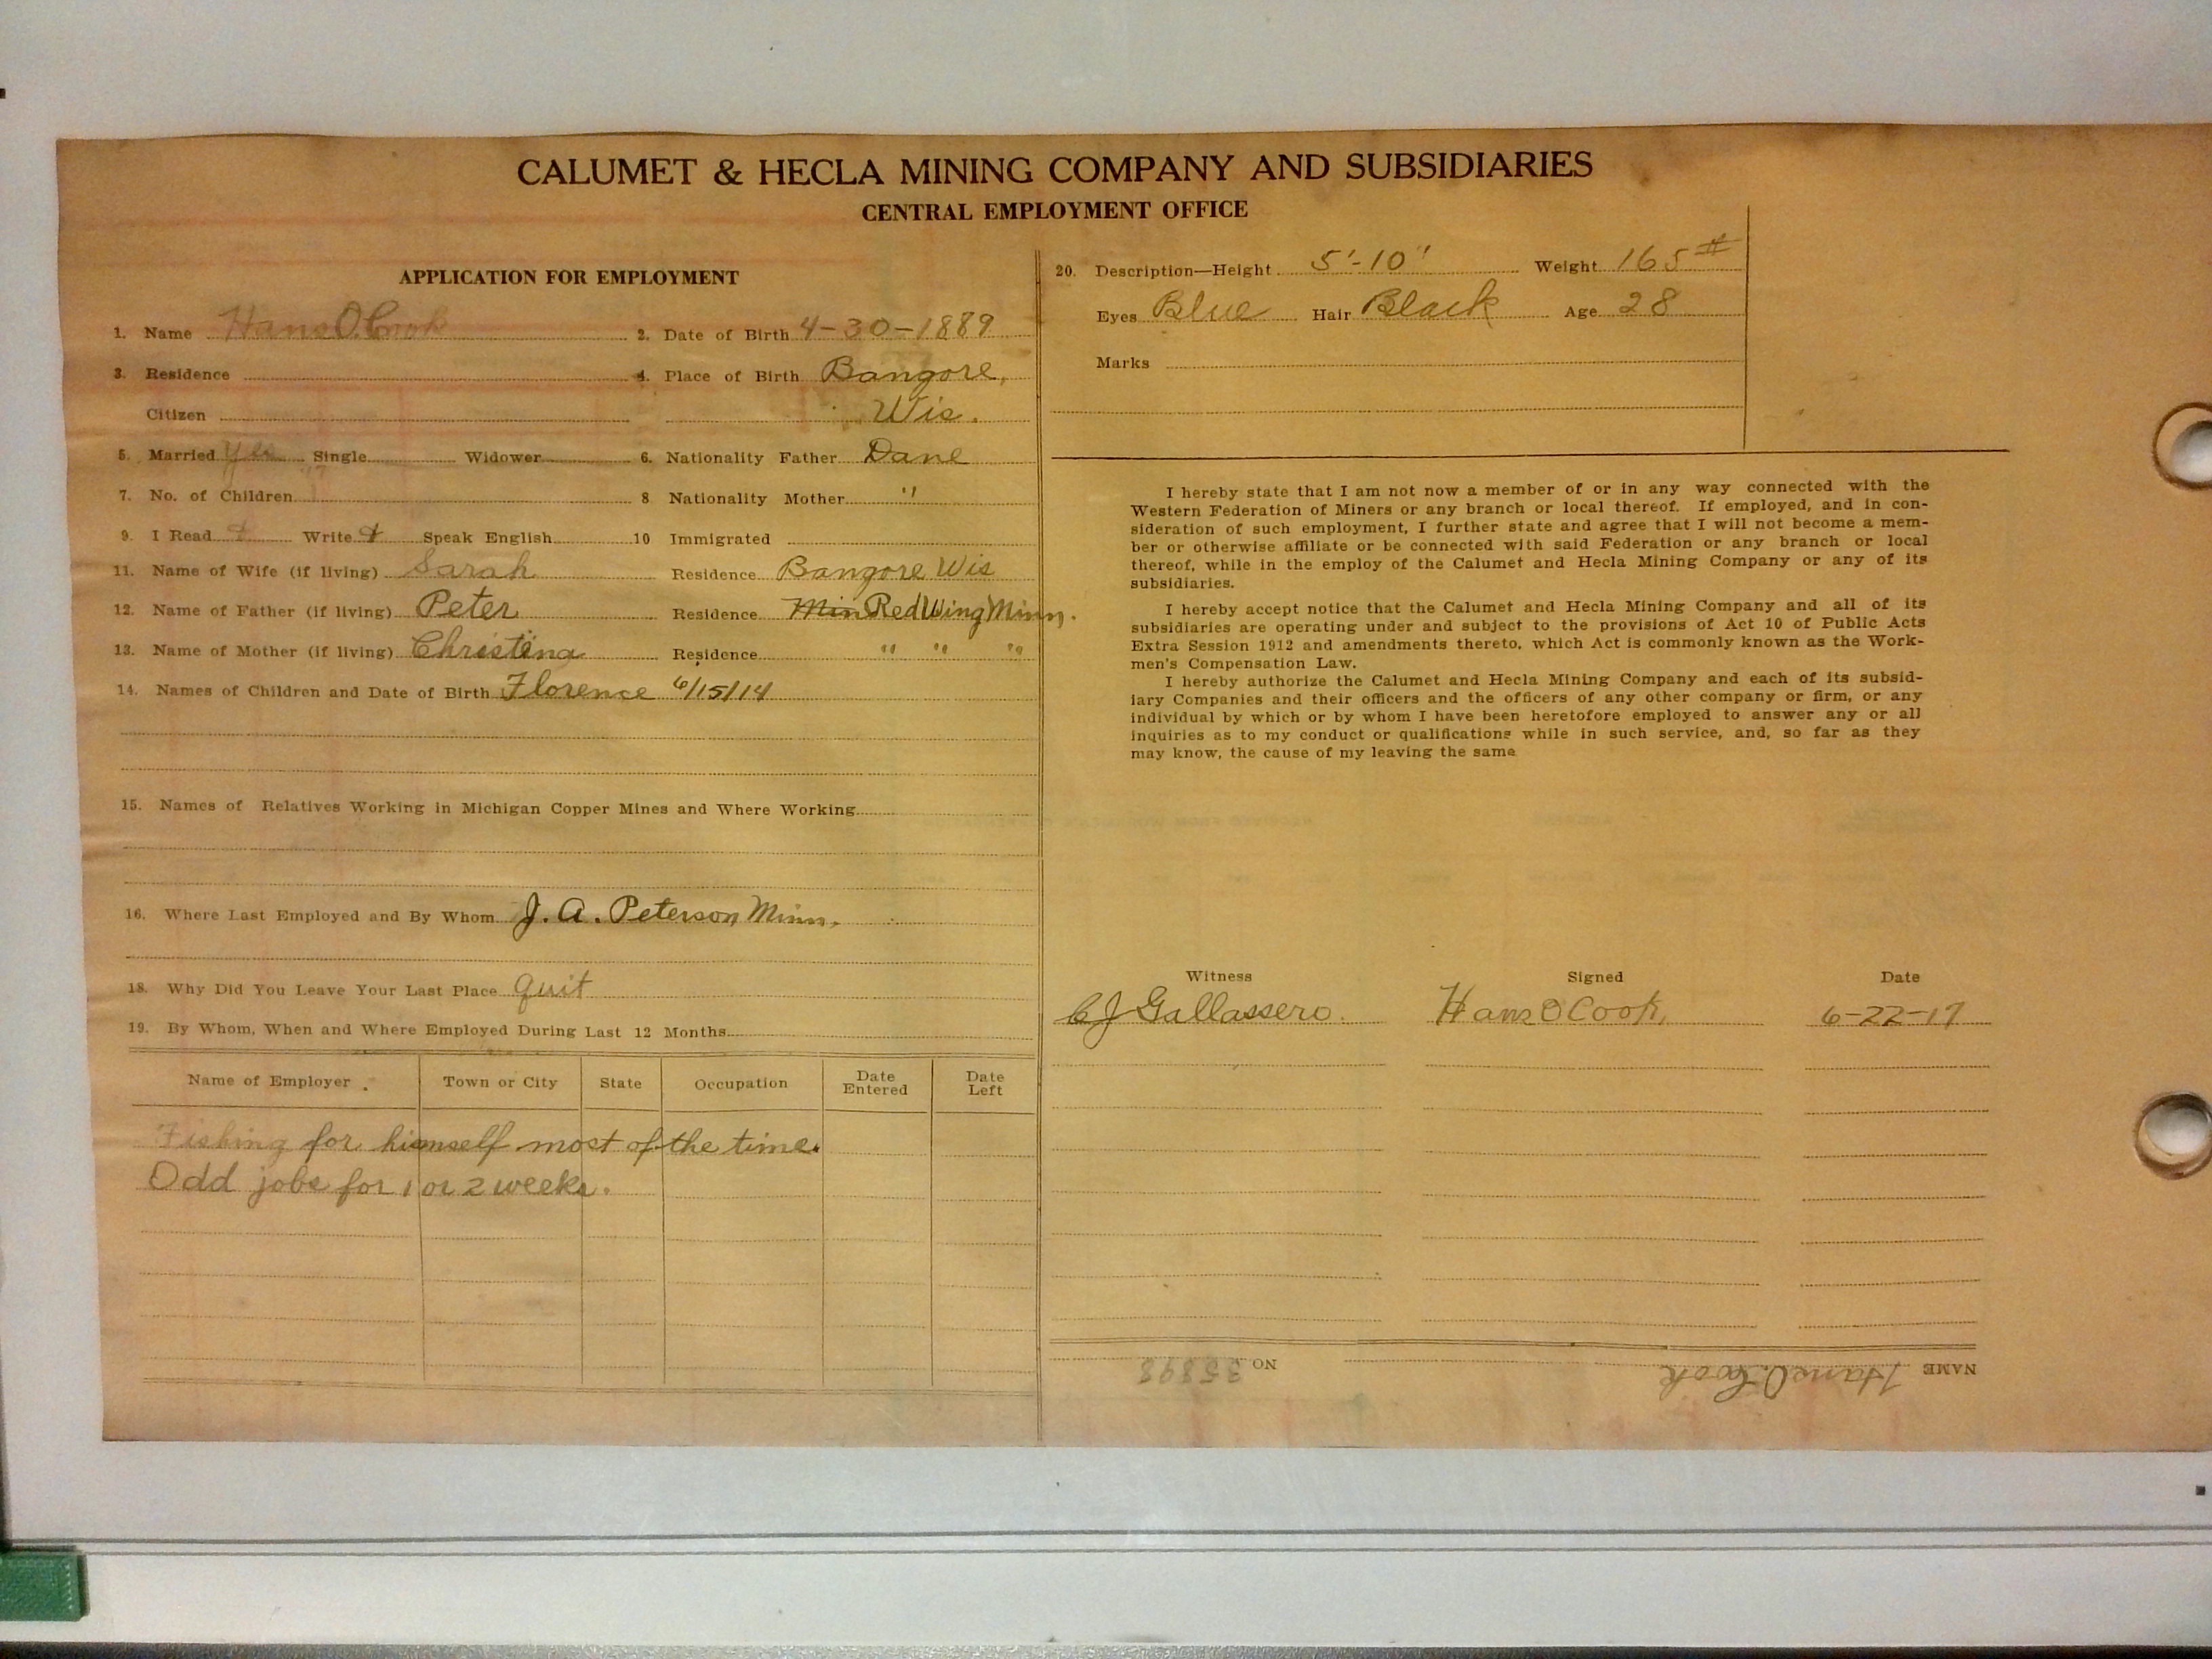 CALUMET & HECLA MINING COMPANY AND SUBSIDIARIES
CENTRAL EMPLOYMENT OFFICE
APPLICATION FOR EMPLOYMENT
1. Name Hans O. Cook 2. Date of Birth 4-30-1889
3. Residence 4. Place of Birth Bangore,
Citizen Wis.
5. Married Yes Single Widower 6. Nationality Father Dane
7. No. of Children 8 Nationality Mother "
9. I Read Write Speak English 10 Immigrated
11. Name of Wife (if living) Sarah Residence Bangore Wis
12. Name of Father (if living) Peter Residence Min Red Wing Minn.
13. Name of Mother (if living) Christina Residence " " "
14. Names of Children and Date of Birth Florence 6/15/14
15. Names of Relatives Working in Michigan Copper Mines and Where Working
16. Where Last Employed and By Whom J. A. Peterson Minn.
18. Why Did You Leave Your Last Place quit
19. By Whom, When and Where Employed During Last 12 Months
Name of Employer Town or City State Occupation Date Entered Date Left
Fishing for himself most of the time.
Odd jobs for 1 or 2 weeks.
20. Description—Height 5'-10" Weight 165#
Eyes Blue Hair Black Age 28
Marks
I hereby state that I am not now a member of or in any way connected with the
Western Federation of Miners or any branch or local thereof. If employed, and in con-
sideration of such employment, I further state and agree that I will not become a mem-
ber or otherwise affiliate or be connected with said Federation or any branch or local
thereof, while in the employ of the Calumet and Hecla Mining Company or any of its
subsidiaries.
I hereby accept notice that the Calumet and Hecla Mining Company and all of its
subsidiaries are operating under and subject to the provisions of Act 10 of Public Acts
Extra Session 1912 and amendments thereto, which Act is commonly known as the Work-
men's Compensation Law.
I hereby authorize the Calumet and Hecla Mining Company and each of its subsid-
iary Companies and their officers and the officers of any other company or firm, or any
individual by which or by whom I have been heretofore employed to answer any or all
inquiries as to my conduct or qualifications while in such service, and, so far as they
may know, the cause of my leaving the same
Witness Signed Date
C J Gallassero. Hans O Cook, 6-22-17
NAME Hans O. Cook NO. 35898